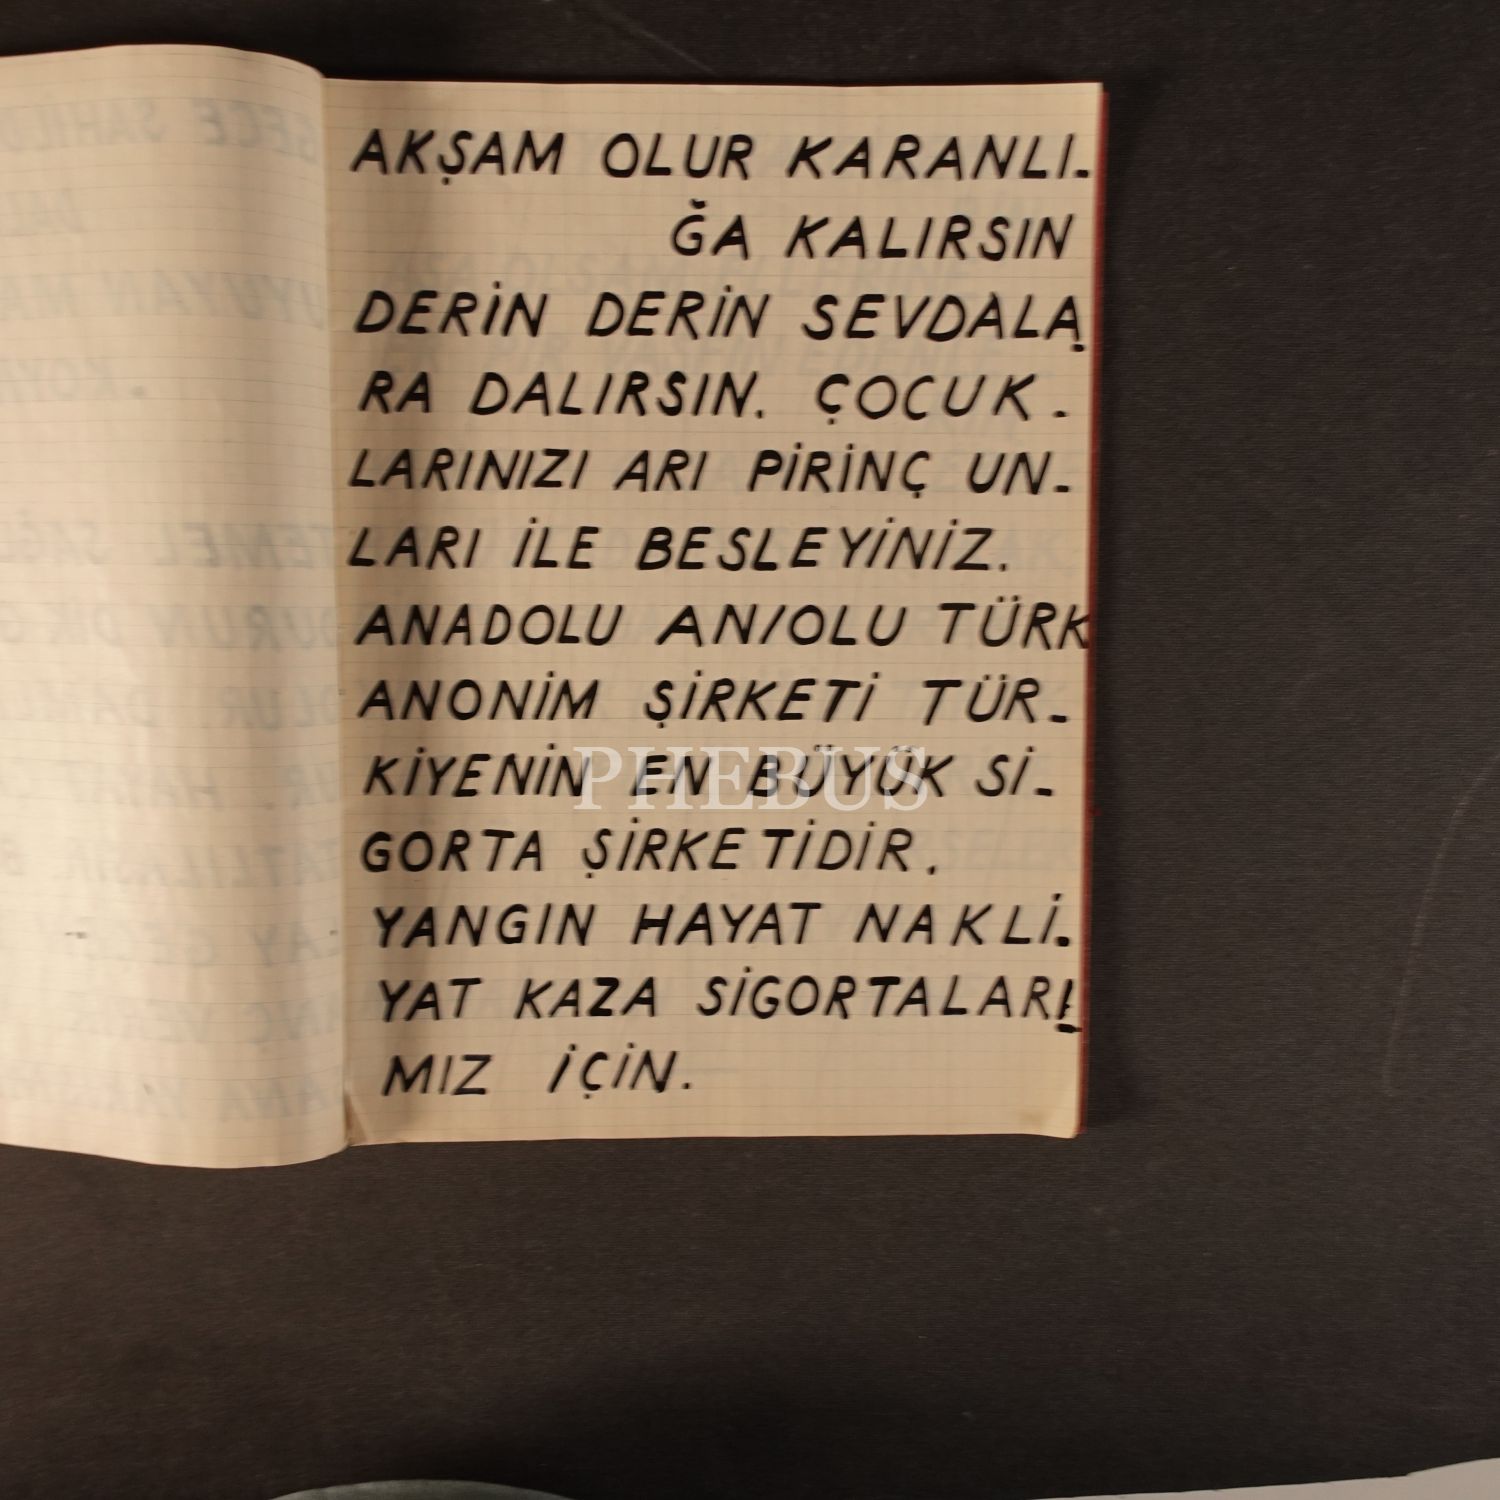 AKŞAM OLUR KARANLI-
ĞA KALIRSIN
DERİN DERİN SEVDALA
RA DALIRSIN. ÇOCUK-
LARINIZI ARI PİRİNÇ UN-
LARI İLE BESLEYİNİZ.
ANADOLU AN/OLU TÜRK
ANONİM ŞİRKETİ TÜR-
KİYENİN EN BÜYÜK Sİ-
GORTA ŞİRKETİDİR.
YANGIN HAYAT NAKLİ-
YAT KAZA SİGORTALARI
MIZ İÇİN.
PHEBUS